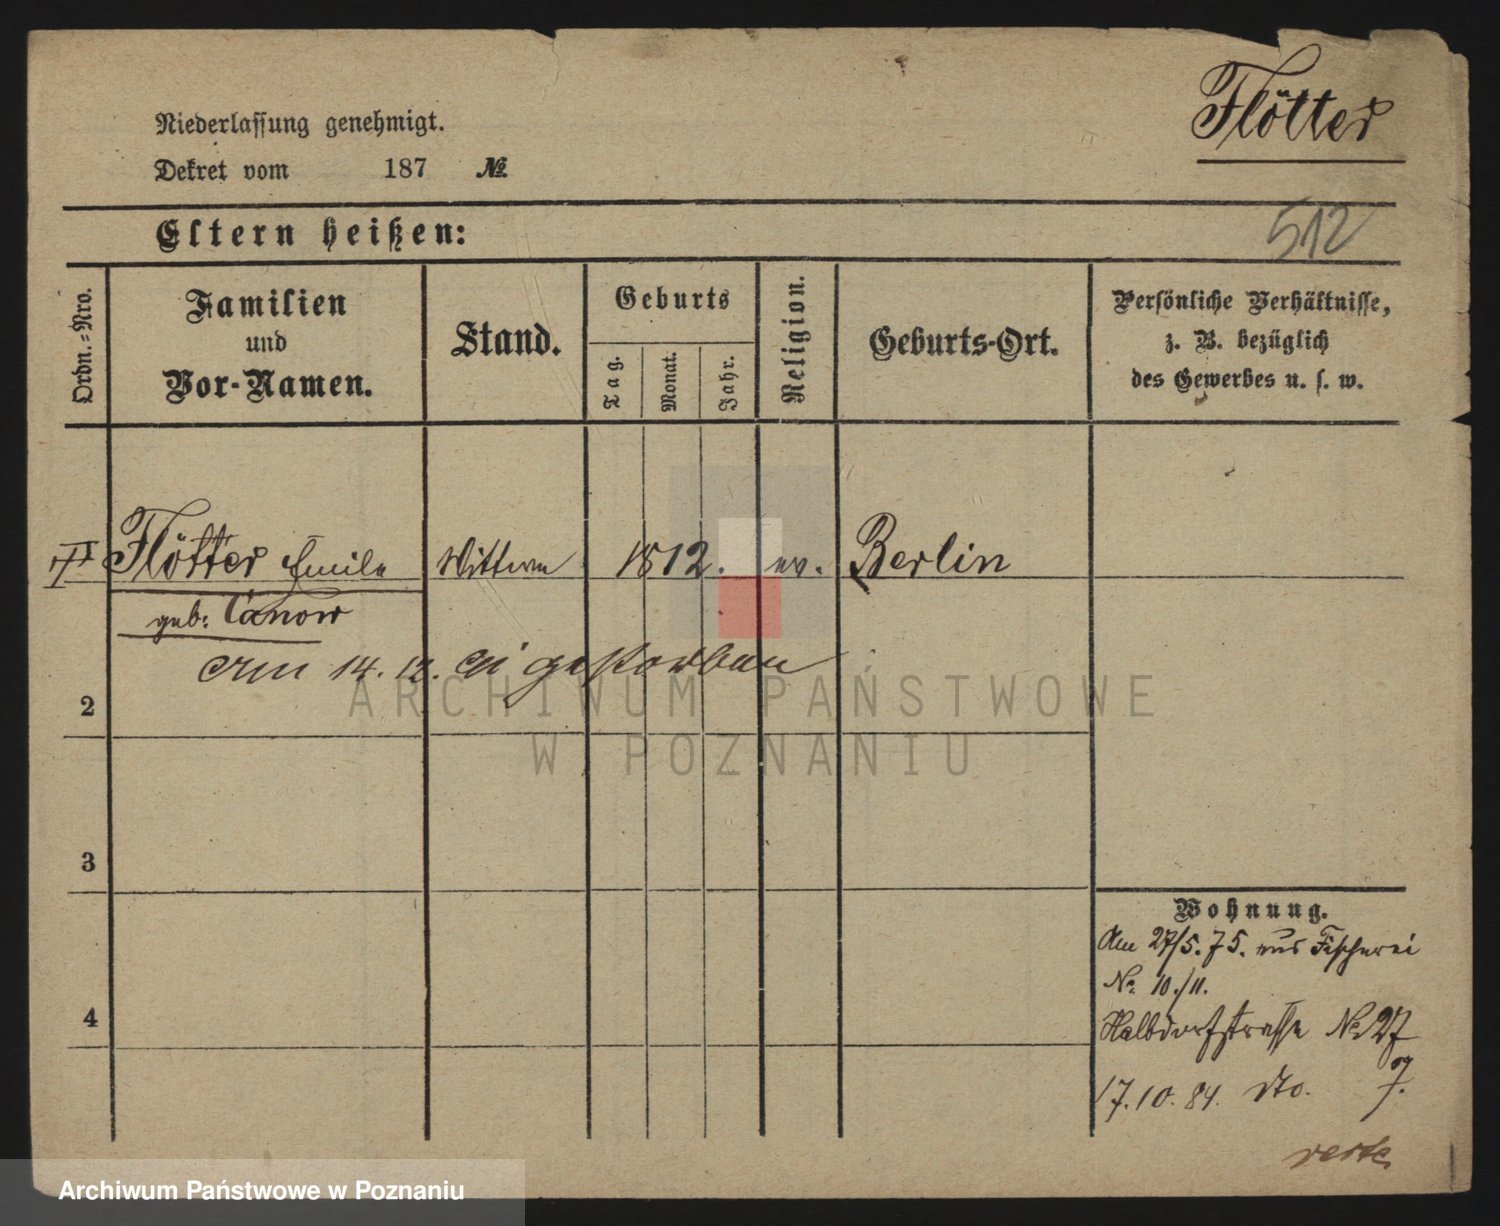 Flötter
Niederlassung genehmigt.
Dekret vom 187 №
Eltern heißen:
512
Ordn.-Nro.
Familien
und
Vor-Namen.
Stand.
Geburts
Tag.
Monat.
Jahr.
Religion.
Geburts-Ort.
Persönliche Verhältnisse,
z. B. bezüglich
des Gewerbes u. s. w.
Flötter Emile Wittwe 1812. ev. Berlin
geb: Canow
Am 14. 12. gestorben
2
3
4
Wohnung.
Am 27/5. 75. aus Fischerei
No 10./11.
Halbdorfstrasse No 27
17. 10. 84. dto.
verte
ARCHIWUM PAŃSTWOWE
W POZNANIU
Archiwum Państwowe w Poznaniu